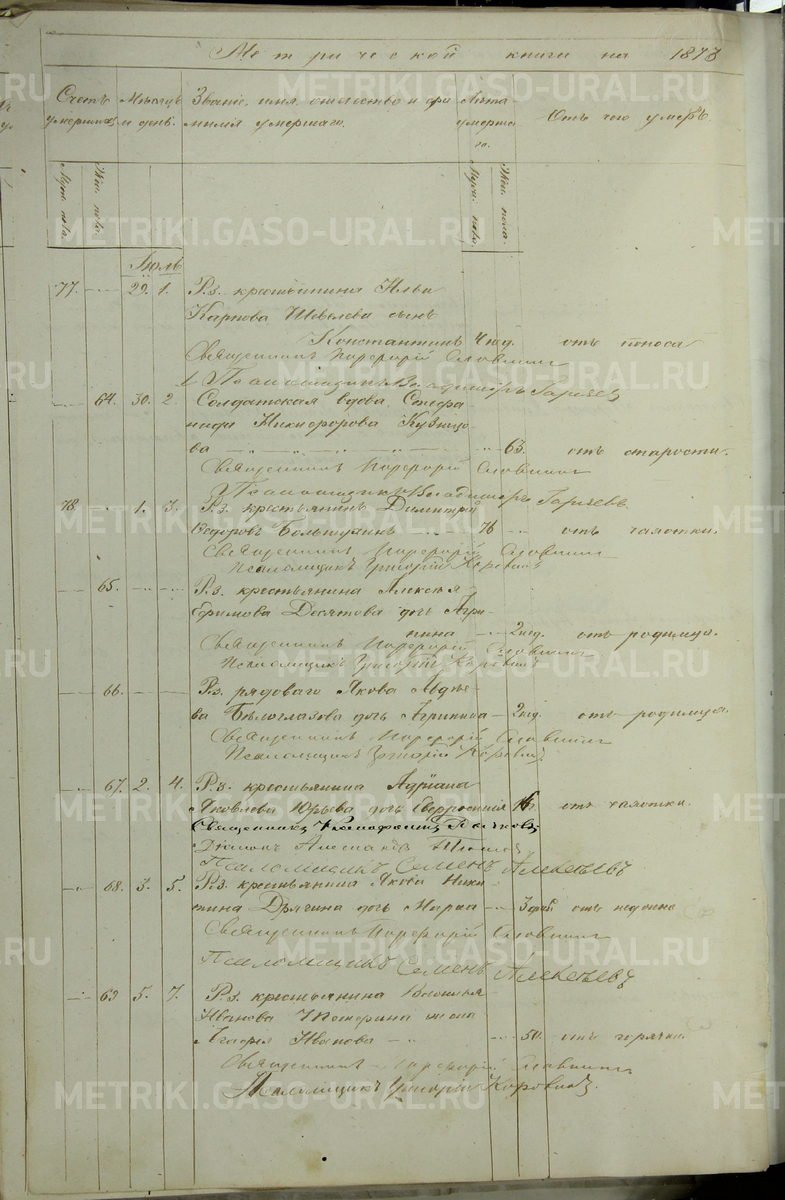 Метрической книги на 1878
Счетъ умершихъ
Мѣсяцъ и день.
Званіе, имя, отчество и фамилія умершаго.
Лѣта умершаго.
Отъ чего умеръ.
Муж. пола.
Жен. пола.
Муж. пола.
Жен. пола.
Іюль
77. 29. 1. Р.з. крестьянина Ильи
Карпова сынъ
Константинъ 4 нед. отъ поноса
Священникъ Порфирій Словцовъ
Псаломщикъ Владимиръ Гаряев
64. 30. 2. Солдатская вдова Стефа-
нида Никифорова Кузнецо-
ва 63. отъ старости.
Священникъ Порфирій Словцовъ
Псаломщикъ Владимиръ Гаряевъ
78. 1. 3. Р.з. крестьянинъ Димитрій
Ѳедоровъ 76 отъ чахотки.
Священникъ Порфирій Словцовъ
Псаломщикъ Григорій Коровинъ
65. Р.з. крестьянина Алексѣя
Ефимова Десятова дочь Агри-
пина 2 нед. отъ родимца.
Священникъ Порфирій Словцовъ
Псаломщикъ Григорій Коровинъ
66. Р.з. рядоваго Якова Авдѣе-
ва Бѣлоглазова дочь Агрипина 2 нед. отъ родимца.
Священникъ Порфирій Словцовъ
Псаломщикъ Григорій Коровинъ
67. 2. 4. Р.з. крестьянина Адріана
Яковлева Юрьева дочь Евфросинія 16 отъ чахотки.
Священникъ
Діаконъ
Псаломщикъ Семенъ Алексѣевъ
68. 3. 5. Р.з. крестьянина Якова Ники-
тина дочь Марѳа 3 дней отъ
Священникъ Порфирій Словцовъ
Псаломщикъ Семенъ Алексѣевъ
69 5. 7. Р.з. крестьянина Василья
Иванова жена
Иванова 50. отъ горячки.
Священникъ Порфирій Словцовъ
Псаломщикъ Григорій Коровинъ.
METRIKI.GASO-URAL.RU